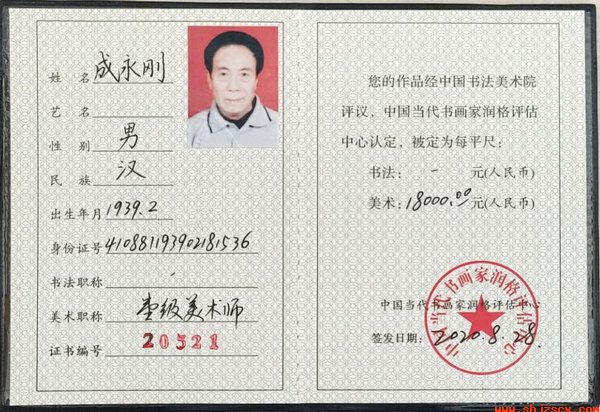 姓名 成永刚
艺名
性别 男
民族 汉
出生年月 1939.2
身份证号 410881193902181536
书法职称 -
美术职称 壹级美术师
证书编号 20521
您的作品经中国书法美术院
评议，中国当代书画家润格评估
中心认定，被定为每平尺：
书法： - 元(人民币)
美术：18000.00元(人民币)
中国当代书画家润格评估中心
签发日期：2020.8.28.
中国当代书画家润格评估中心
www.shjzscx.com